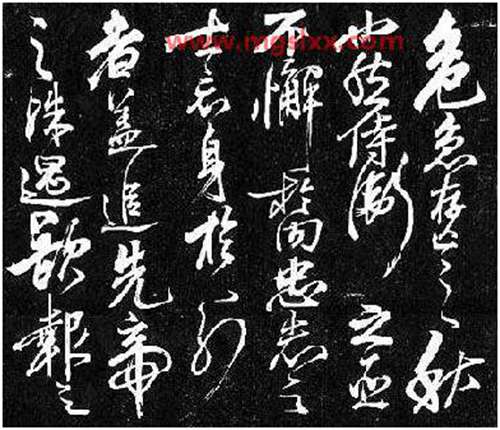 www.mgslxx.com
危急存亡之秋
也然侍衛之臣
不懈於内忠志之
士忘身於外
者蓋追先帝
之殊遇欲報之